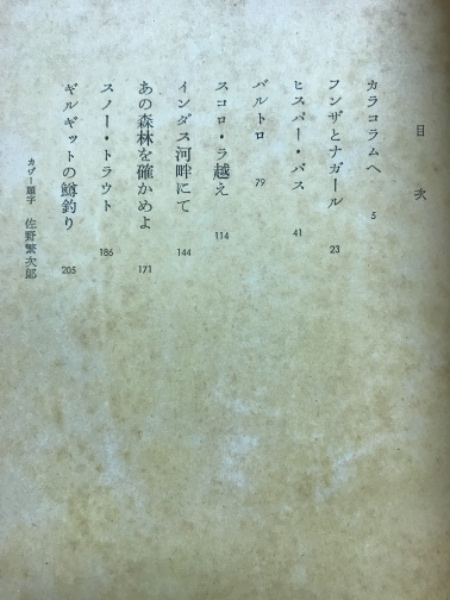 目次
カラコラムへ 5
フンザとナガール 23
ヒスパー・パス 41
バルトロ 79
スコロ・ラ越え 114
インダス河畔にて 144
あの森林を確かめよ 171
スノー・トラウト 186
ギルギットの鱒釣り 205
カヴー題字 佐野繁次郎